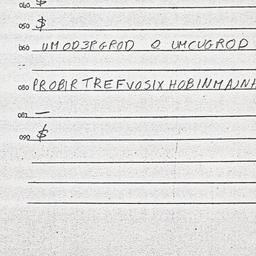 040 $
050 $
060 UMOD3PGPOD O UMCUGROD
080 PROBIRTREFVOSIXHOBINMAJNH
081 —
090 $